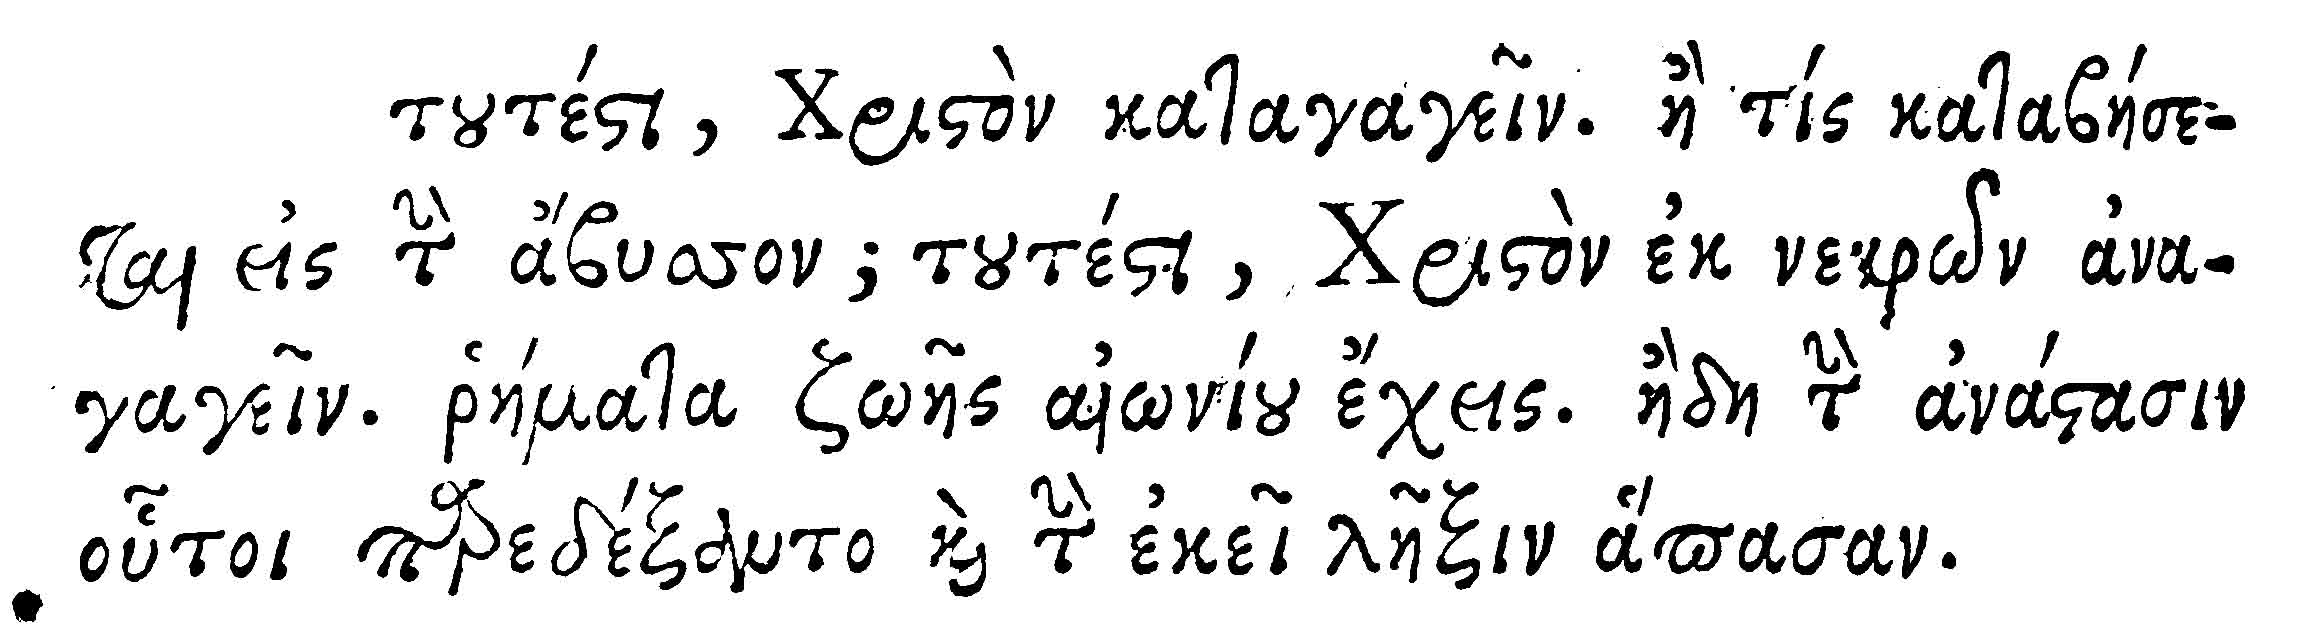 τουτέστι, Χριστὸν καταγαγεῖν. ἢ τίς καταβήσε-
ται εἰς τὴν ἄβυσσον; τουτέστι, Χριστὸν ἐκ νεκρῶν ἀνα-
γαγεῖν. ῥήματα ζωῆς αἰωνίου ἔχεις. ἤδη τὴν ἀνάστασιν
οὗτοι παρεδέξαντο καὶ τὴν ἐκεῖ λῆξιν ἅπασαν.